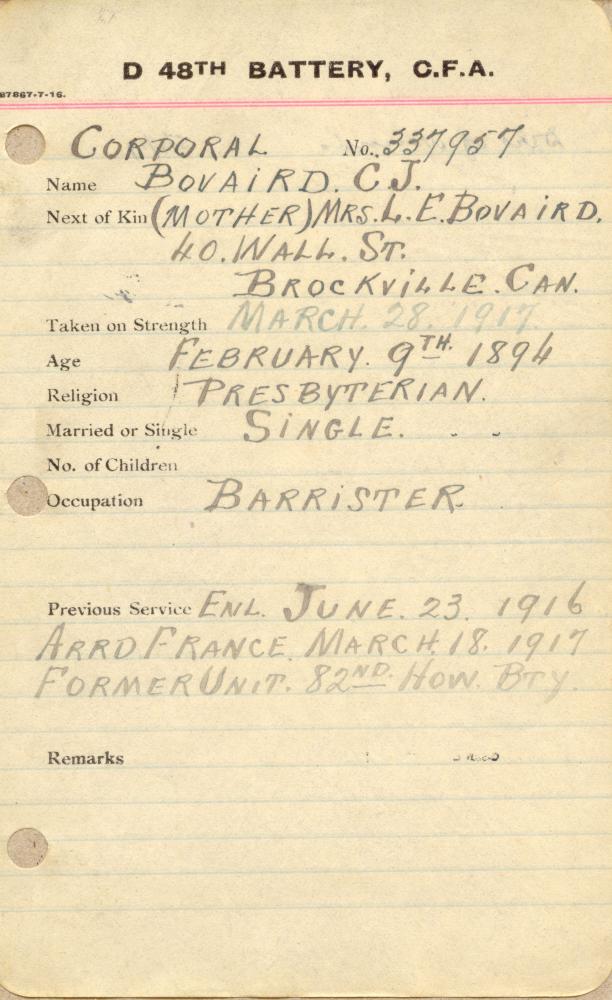 D 48TH BATTERY, C.F.A.
87867-7-16.
CORPORAL No. 337957
Name BOVAIRD. C.J.
Next of Kin (MOTHER) MRS. L. E. BOVAIRD.
40. WALL. ST.
BROCKVILLE. CAN.
Taken on Strength MARCH. 28. 1917.
Age FEBRUARY. 9TH. 1894
Religion PRESBYTERIAN.
Married or Single SINGLE.
No. of Children
Occupation BARRISTER
Previous Service ENL. JUNE. 23. 1916
ARRD FRANCE. MARCH. 18. 1917
FORMER UNIT. 82ND. HOW. BTY.
Remarks